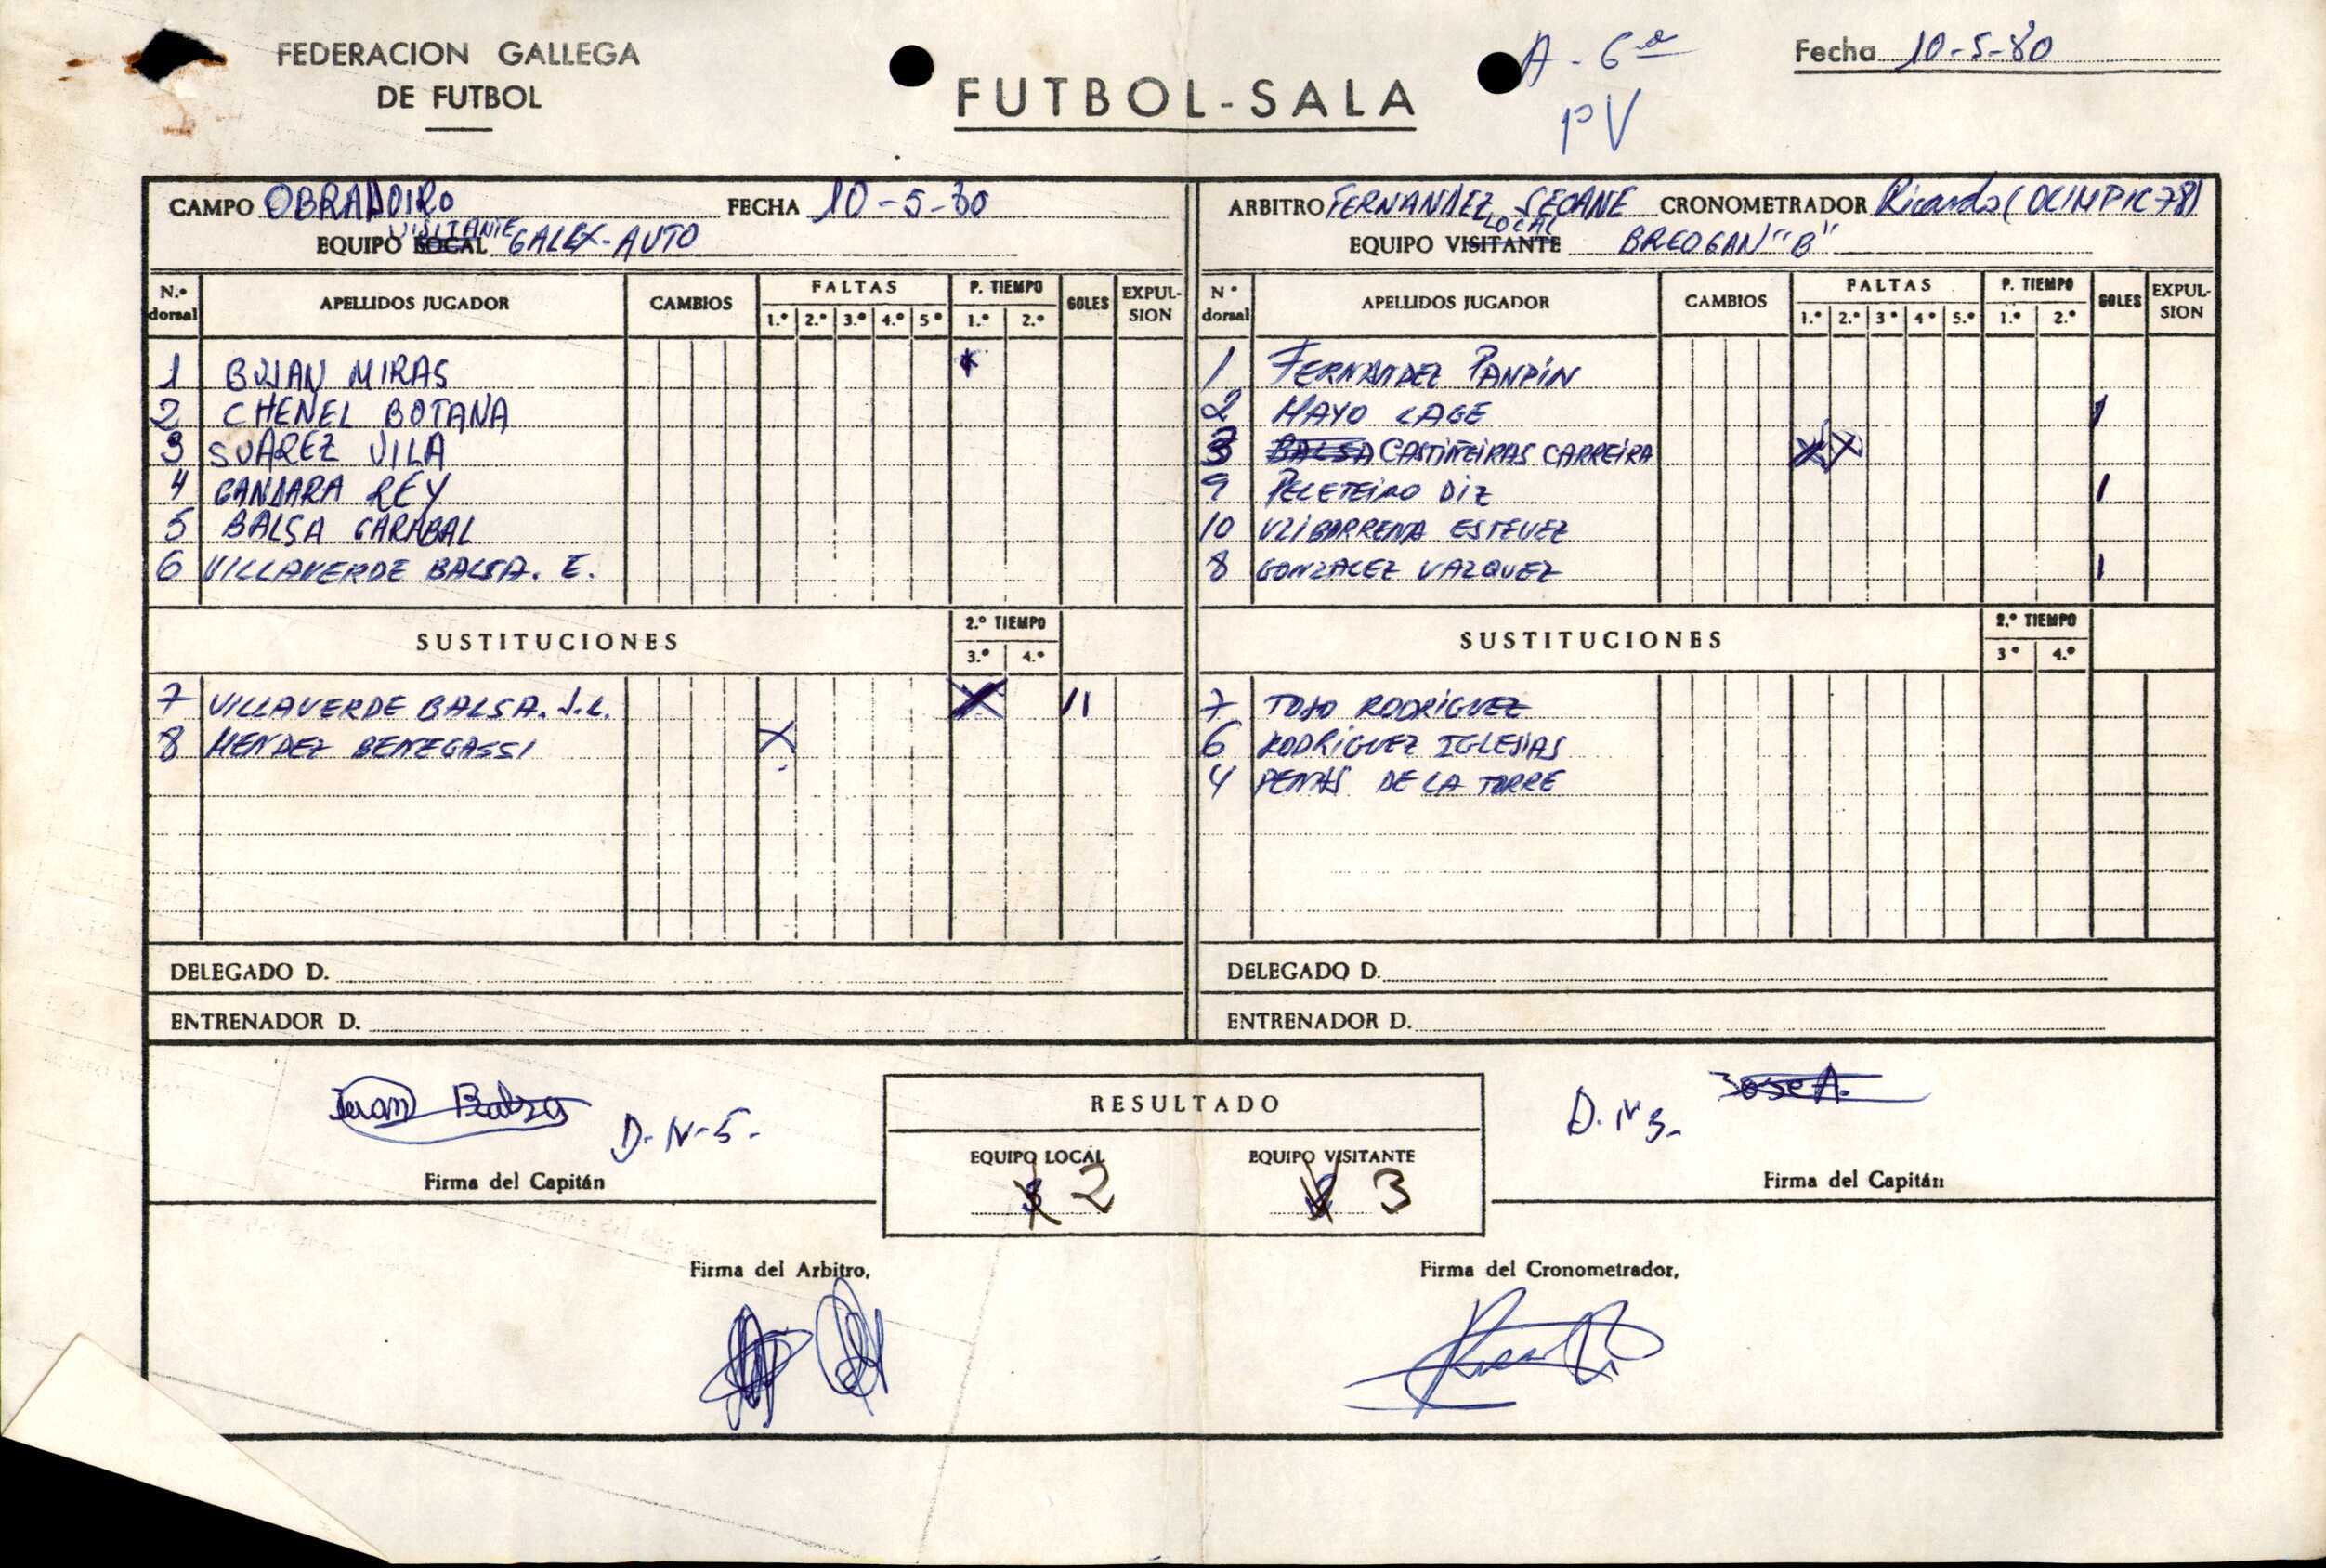 FEDERACION GALLEGA
DE FUTBOL
FUTBOL-SALA
A - 6ª
PV
Fecha 10-5-80
CAMPO OBRADOIRO FECHA 10-5-80
EQUIPO LOCAL VISITANTE GALEX-AUTO
ARBITRO FERNANDEZ SEOANE CRONOMETRADOR Ricardo (OLIMPIC 78)
EQUIPO VISITANTE LOCAL BREOGAN "B"
N.º dorsal APELLIDOS JUGADOR CAMBIOS FALTAS P. TIEMPO GOLES EXPULSION
1.º 2.º 3.º 4.º 5º 1.º 2.º
1 BUJAN MIRAS x
2 CHENEL BOTANA
3 SUAREZ VILA
4 GANDARA REY
5 BALSA CARABAL
6 VILLAVERDE BALSA. E.
SUSTITUCIONES 2.º TIEMPO
3.º 4.º
7 VILLAVERDE BALSA. J.L. X 11
8 MENDEZ BENEGASSI X
DELEGADO D.
ENTRENADOR D.
N º dorsal APELLIDOS JUGADOR CAMBIOS FALTAS P. TIEMPO GOLES EXPULSION
1.º 2.º 3º 4º 5.º 1.º 2.º
1 FERNANDEZ PANPIN
2 MAYO LAGE 1
3 BALSA CASTIÑEIRAS CARREIRA X X
9 PELETEIRO DIZ 1
10 ULIBARRENA ESTEVEZ
8 GONZALEZ VAZQUEZ 1
SUSTITUCIONES 2.º TIEMPO
3º 4.º
7 TOJO RODRIGUEZ
6 RODRIGUEZ IGLESIAS
4 PENAS DE LA TORRE
DELEGADO D.
ENTRENADOR D.
Juan Balsa D-N-5-
Firma del Capitán
RESULTADO
EQUIPO LOCAL EQUIPO VISITANTE
2 3
D. N 3- Jose A.
Firma del Capitán
Firma del Arbitro,
Firma del Cronometrador,